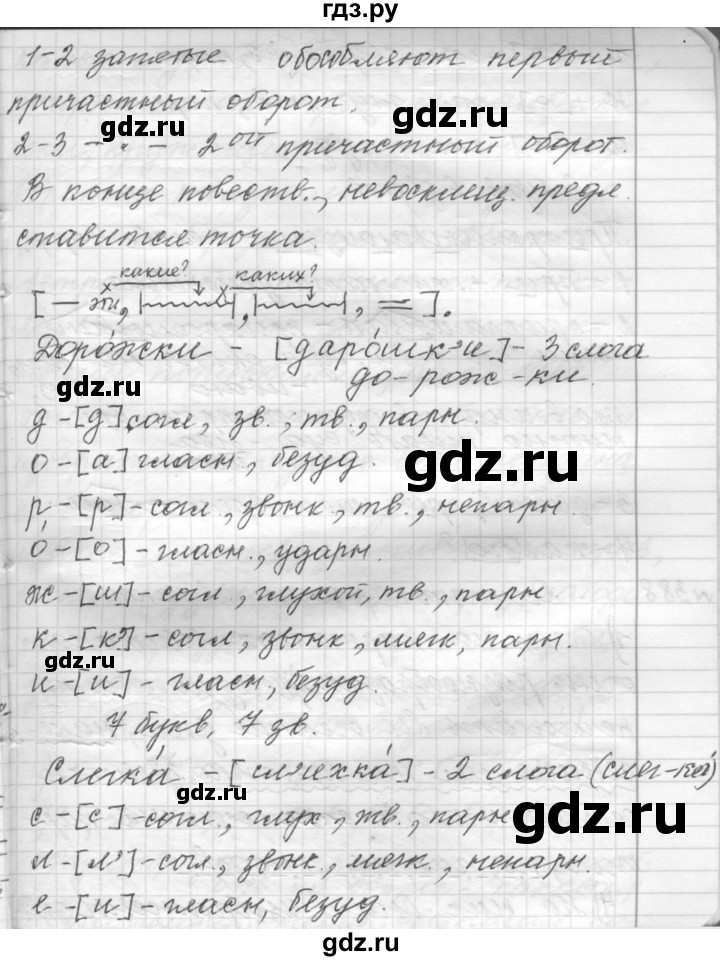 гдз.ру
1-2 запятые обособляют первый
причастный оборот.
2-3 – " – 2ой причастный оборот.
В конце повеств., невосклиц. предл.
ставится точка.
какие? каких?
[— эти, |~~~|, |~~~|, =].
Доро́жки - [даро́шк'и] - 3 слога
до-рож-ки.
д - [д] согл, зв., тв., парн.
о - [а] гласн, безуд.
р - [р] - согл., звонк., тв., непарн.
о́ - [о] - гласн., ударн.
ж - [ш] - согл., глухой, тв., парн
к - [к'] - согл, звонк, мягк, парн.
и - [и] - гласн, безуд.
7 букв, 7 зв.
Слегка́ - [сл'ихка́] - 2 слога (слег-ка́)
с - [с] - согл., глух., тв., парн
л - [л'] - согл., звонк., мягк., непарн.
е - [и] - гласн, безуд.
gdz.ru
gdz.ru
gdz.ru
gdz.ru
gdz.ru
gdz.ru
gdz.ru
gdz.ru
gdz.ru